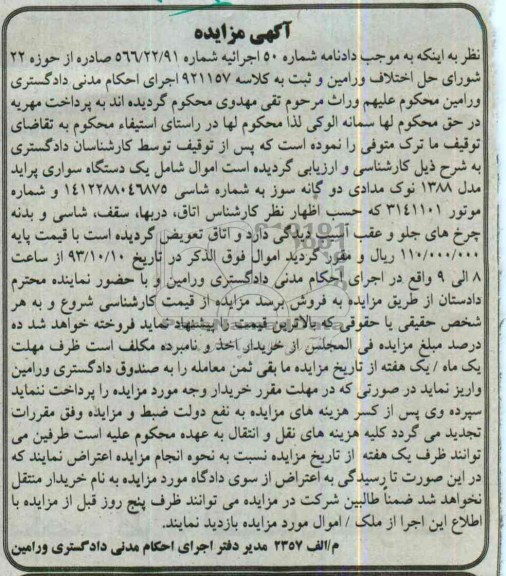 آگهی مزایده
نظر به اینکه به موجب دادنامه شماره ۵۰ اجرائیه شماره ۵۶۶/۲۲/۹۱ صادره از حوزه ۲۲
شورای حل اختلاف ورامین و ثبت به کلاسه ۹۲۱۱۵۷ اجرای احکام مدنی دادگستری
ورامین محکوم علیهم وراث مرحوم تقی مهدوی محکوم گردیده اند به پرداخت مهریه
در حق محکوم لها سمانه الوکی لذا محکوم لها در راستای استیفاء محکوم به تقاضای
توقیف ما ترک متوفی را نموده است که پس از توقیف توسط کارشناسان دادگستری
به شرح ذیل کارشناسی و ارزیابی گردیده است اموال شامل یک دستگاه سواری پراید
مدل ۱۳۸۸ نوک مدادی دو گانه سوز به شماره شاسی ۱۴۱۲۲۸۸۰۴۶۸۷۵ و شماره
موتور ۳۱۴۱۱۰۱ که حسب اظهار نظر کارشناس اتاق، دربها، سقف، شاسی و بدنه
چرخ های جلو و عقب آسیب دیدگی دارد و اتاق تعویض گردیده است با قیمت پایه
۱۱۰/۰۰۰/۰۰۰ ریال و مقرر گردید اموال فوق الذکر در تاریخ ۹۳/۱۰/۱۰ از ساعت
۸ الی ۹ واقع در اجرای احکام مدنی دادگستری ورامین و با حضور نماینده محترم
دادستان از طریق مزایده به فروش برسد مزایده از قیمت کارشناسی شروع و به هر
شخص حقیقی یا حقوقی که بالاترین قیمت را پیشنهاد نماید فروخته خواهد شد ده
درصد مبلغ مزایده فی المجلس از خریدار اخذ و نامبرده مکلف است ظرف مهلت
یک ماه / یک هفته از تاریخ مزایده ما بقی ثمن معامله را به صندوق دادگستری ورامین
واریز نماید در صورتی که در مهلت مقرر خریدار وجه مورد مزایده را پرداخت ننماید
سپرده وی پس از کسر هزینه های مزایده به نفع دولت ضبط و مزایده وفق مقررات
تجدید می گردد کلیه هزینه های نقل و انتقال به عهده محکوم علیه است طرفین می
توانند ظرف یک هفته از تاریخ مزایده نسبت به نحوه انجام مزایده اعتراض نمایند که
در این صورت تا رسیدگی به اعتراض از سوی دادگاه مورد مزایده به نام خریدار منتقل
نخواهد شد ضمناً طالبین شرکت در مزایده می توانند ظرف پنج روز قبل از مزایده با
اطلاع این اجرا از ملک / اموال مورد مزایده بازدید نمایند.
م/الف ۲۳۵۷ مدیر دفتر اجرای احکام مدنی دادگستری ورامین